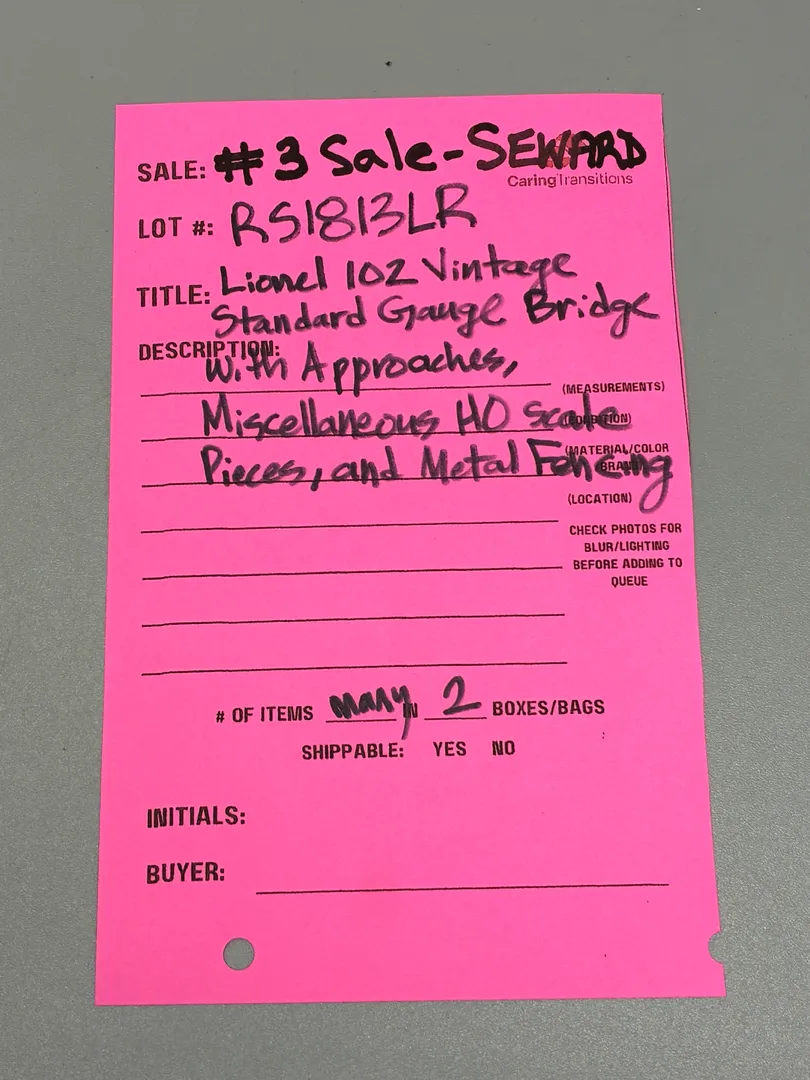 SALE: #3 Sale-SEWARD
CaringTransitions
LOT #: RS1813LR
TITLE: Lionel 102 Vintage
Standard Gauge Bridge
DESCRIPTION:
With Approaches,
(MEASUREMENTS)
Miscellaneous HO Scale
(CONDITION)
(MATERIAL/COLOR
BRAND)
Pieces, and Metal Fencing
(LOCATION)
CHECK PHOTOS FOR
BLUR/LIGHTING
BEFORE ADDING TO
QUEUE
# OF ITEMS many IN 2 BOXES/BAGS
SHIPPABLE: YES NO
INITIALS:
BUYER: